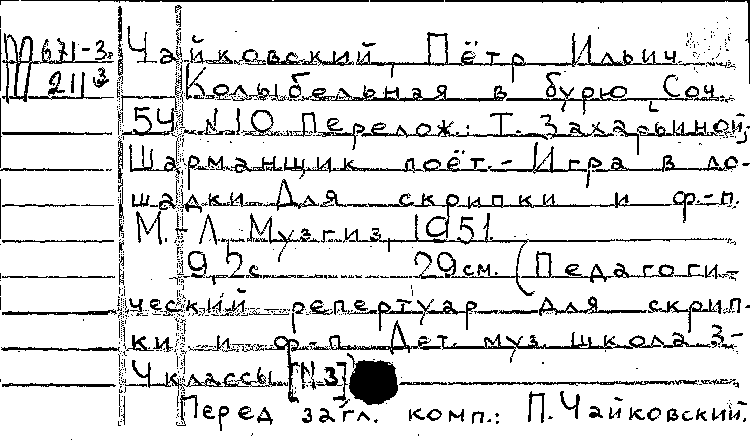 М 671-3 Чайковский, Пётр Ильич
211 3 Колыбельная в бурю, Соч.
54 № 10 Перелож.: Т. Захарьиной;
Шарманщик поёт. - Игра в ло-
шадки Для скрипки и ф.-п.
М.-Л., Музгиз, 1951.
9, 2 с 29 см. (Педагоги-
ческий репертуар для скрип-
ки и ф-п. Дет. муз. школа 3-
4 классы [№ 3]
Перед загл. комп.: П. Чайковский.